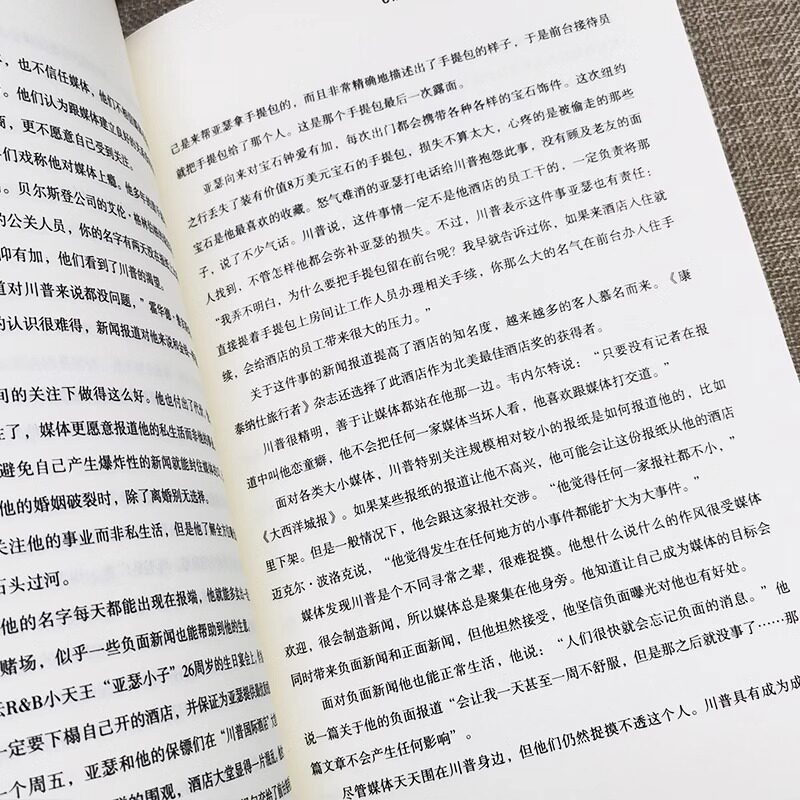 ，也不信任媒体，他们不
。他们认为跟媒体建立良
，更不愿意自己受到关注。
们戏称他对媒体上瘾。他多
。贝尔斯登公司的艾伦·
的公关人员，你的名字有两天
仰有加，他们看到了川普的渴望。
道对川普来说都没问题，”
的认识很难得，新闻报道对他来说
间的关注下做得这么好。他也付出了代
生了，媒体更愿意报道他的私生活而非他
避免自己产生爆炸性的新闻就能封住媒体
他的婚姻破裂时，除了离婚别无选择。
关注他的事业而非私生活，但是他了解
石头过河。
他的名字每天都能出现在报端，他就能多
赌场，似乎一些负面新闻也能帮助到他的生意。
R&B小天王“亚瑟小子”26周岁的生日宴会上，
一定要下榻自己开的酒店，并保证为亚瑟提供最
一个周五，亚瑟和他的保镖们在“川普国际酒店”
的围观，酒店大堂显得一片混乱，
己是来帮亚瑟拿手提包的，而且非常精确地描述出了手提包的样子，于是前台接待员
就把手提包给了那个人。这是那个手提包最后一次露面。
亚瑟向来对宝石钟爱有加，每次出门都会携带各种各样的宝石饰件。这次纽约
之行丢失了装有价值8万美元宝石的手提包，损失不算太大，心疼的是被偷走的那些
宝石是他最喜欢的收藏。怒气难消的亚瑟打电话给川普抱怨此事，没有顾及老友的面
子，说了不少气话。川普说，这件事情一定不是他酒店的员工干的，一定负责将那
人找到，不管怎样他都会弥补亚瑟的损失。不过，川普表示这件事亚瑟也有责任：
“我弄不明白，为什么要把手提包留在前台呢？我早就告诉过你，如果来酒店入住就
直接提着手提包上房间让工作人员办理相关手续，你那么大的名气在前台办入住手
续，会给酒店的员工带来很大的压力。”
关于这件事的新闻报道提高了酒店的知名度，越来越多的客人慕名而来。《康
泰纳仕旅行者》杂志还选择了此酒店作为北美最佳酒店奖的获得者。
川普很精明，善于让媒体都站在他那一边。韦内尔特说：“只要没有记者在报
道中叫他恋童癖，他不会把任何一家媒体当坏人看，他喜欢跟媒体打交道。”
面对各类大小媒体，川普特别关注规模相对较小的报纸是如何报道他的，比如
《大西洋城报》。如果某些报纸的报道让他不高兴，他可能会让这份报纸从他的酒店
里下架。但是一般情况下，他会跟这家报社交涉。“他觉得任何一家报社都不小，”
迈克尔·波洛克说，“他觉得发生在任何地方的小事件都能扩大为大事件。”
媒体发现川普是个不同寻常之辈，很难捉摸。他想什么说什么的作风很受媒体
欢迎，很会制造新闻，所以媒体总是聚集在他身旁。他知道让自己成为媒体的目标会
同时带来负面新闻和正面新闻，但他坦然接受，他坚信负面曝光对他也有好处。
面对负面新闻他也能正常生活，他说：“人们很快就会忘记负面的消息。”他
说一篇关于他的负面报道“会让我一天甚至一周不舒服，但是那之后就没事了……那
篇文章不会产生任何影响”。
尽管媒体天天围在川普身边，但他们仍然捉摸不透这个人。川普具有成为成